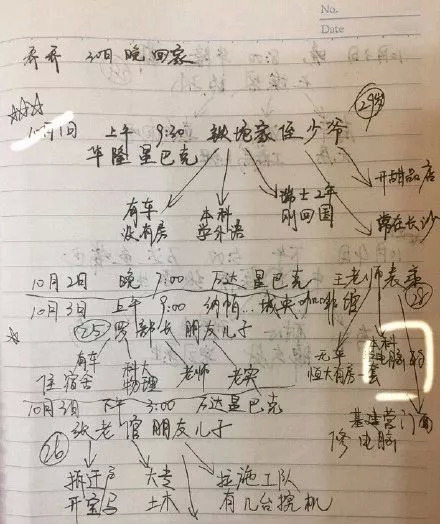 No.
Date
乔乔 30日晚回家
29岁
10月1日 上午 9:30 姨婆家侄少爷
华隆星巴克
有车 没有房
本科 学外语
瑞士2年 刚回国
开甜品店
常在长沙
10月2日 晚 7:00 万达星巴克 王老师表亲
28
10月3日 上午 9:00 纳帕...城央
25 罗部长朋友儿子
有车 住宿舍
科大 物理
老师
老实
无车 恒大有房一套
本科 电脑
基建营门面 修电脑
10月3日 下午 3:00 万达星巴克
张老馆朋友儿子
26
拆迁户 开宝马
大专 土木
拉施工队 有几台挖机